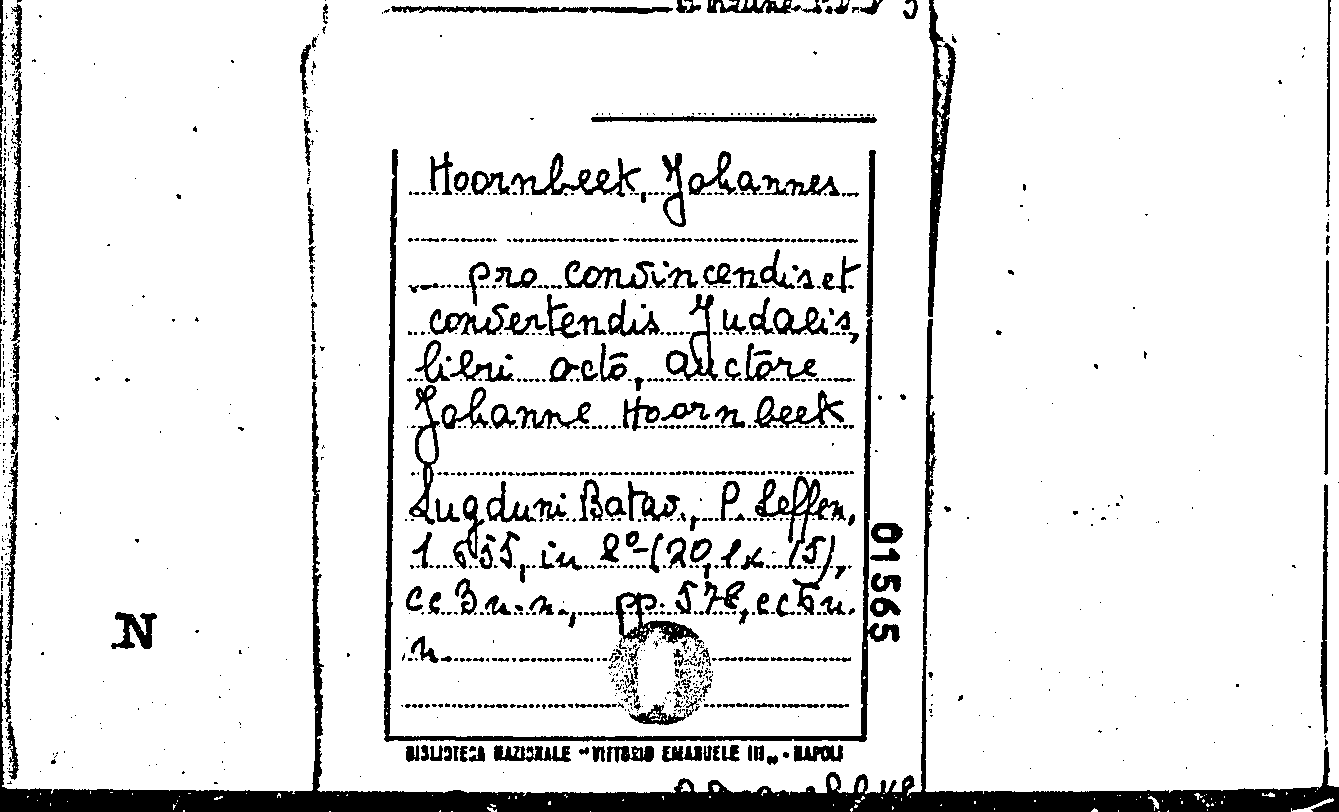 Hoornbeek, Johannes
... pro convincendis et
convertendis Judaeis,
libri octo, auctore
Johanne Hoornbeek
Lugduni Batav., P. Leffen,
1655, in 2º (20,1x 15),
cc 3 n.n., pp. 578, cc 5 n.
n.
01565
N
BIBLIOTECA NAZIONALE "VITTORIO EMANUELE III„ - NAPOLI